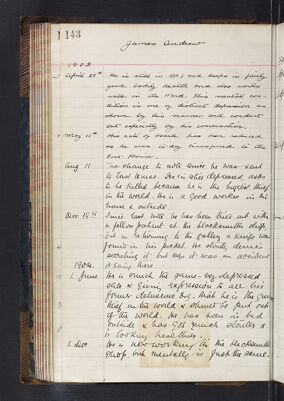 143
James Andrew
1903
April 29th He is still in M1 and keeps in fairly
good bodily health and also works
well in the Ward. His mental con-
dition is one of distinct depression as
shown by his manner and conduct
especially by his conversation.
May 11th This rate of board has been reduced
as he was to-day transferred to the
East House.
Aug 11 No change to note since he was sent
to East House. He is still depressed asks
to be killed because he is the biggest thief
in the world. He is a good worker in the
house & outside
Dec 18th Since last note he has been out with
a fellow patient at the blacksmiths shop
but on returning to the gallery a knife was
found in his pocket. He denies
secreting it, but says it was an accident
being there.
1904
1 June He is much the same - very depressed
state & giving expression to all his
former delusions e.g. that he is the
thief in the world & ought to be put out
of the world. He has been in bed
outside & has
is looking healthier.
2 Dec He is now working in the blacksmiths
shop, but mentally is just the same.